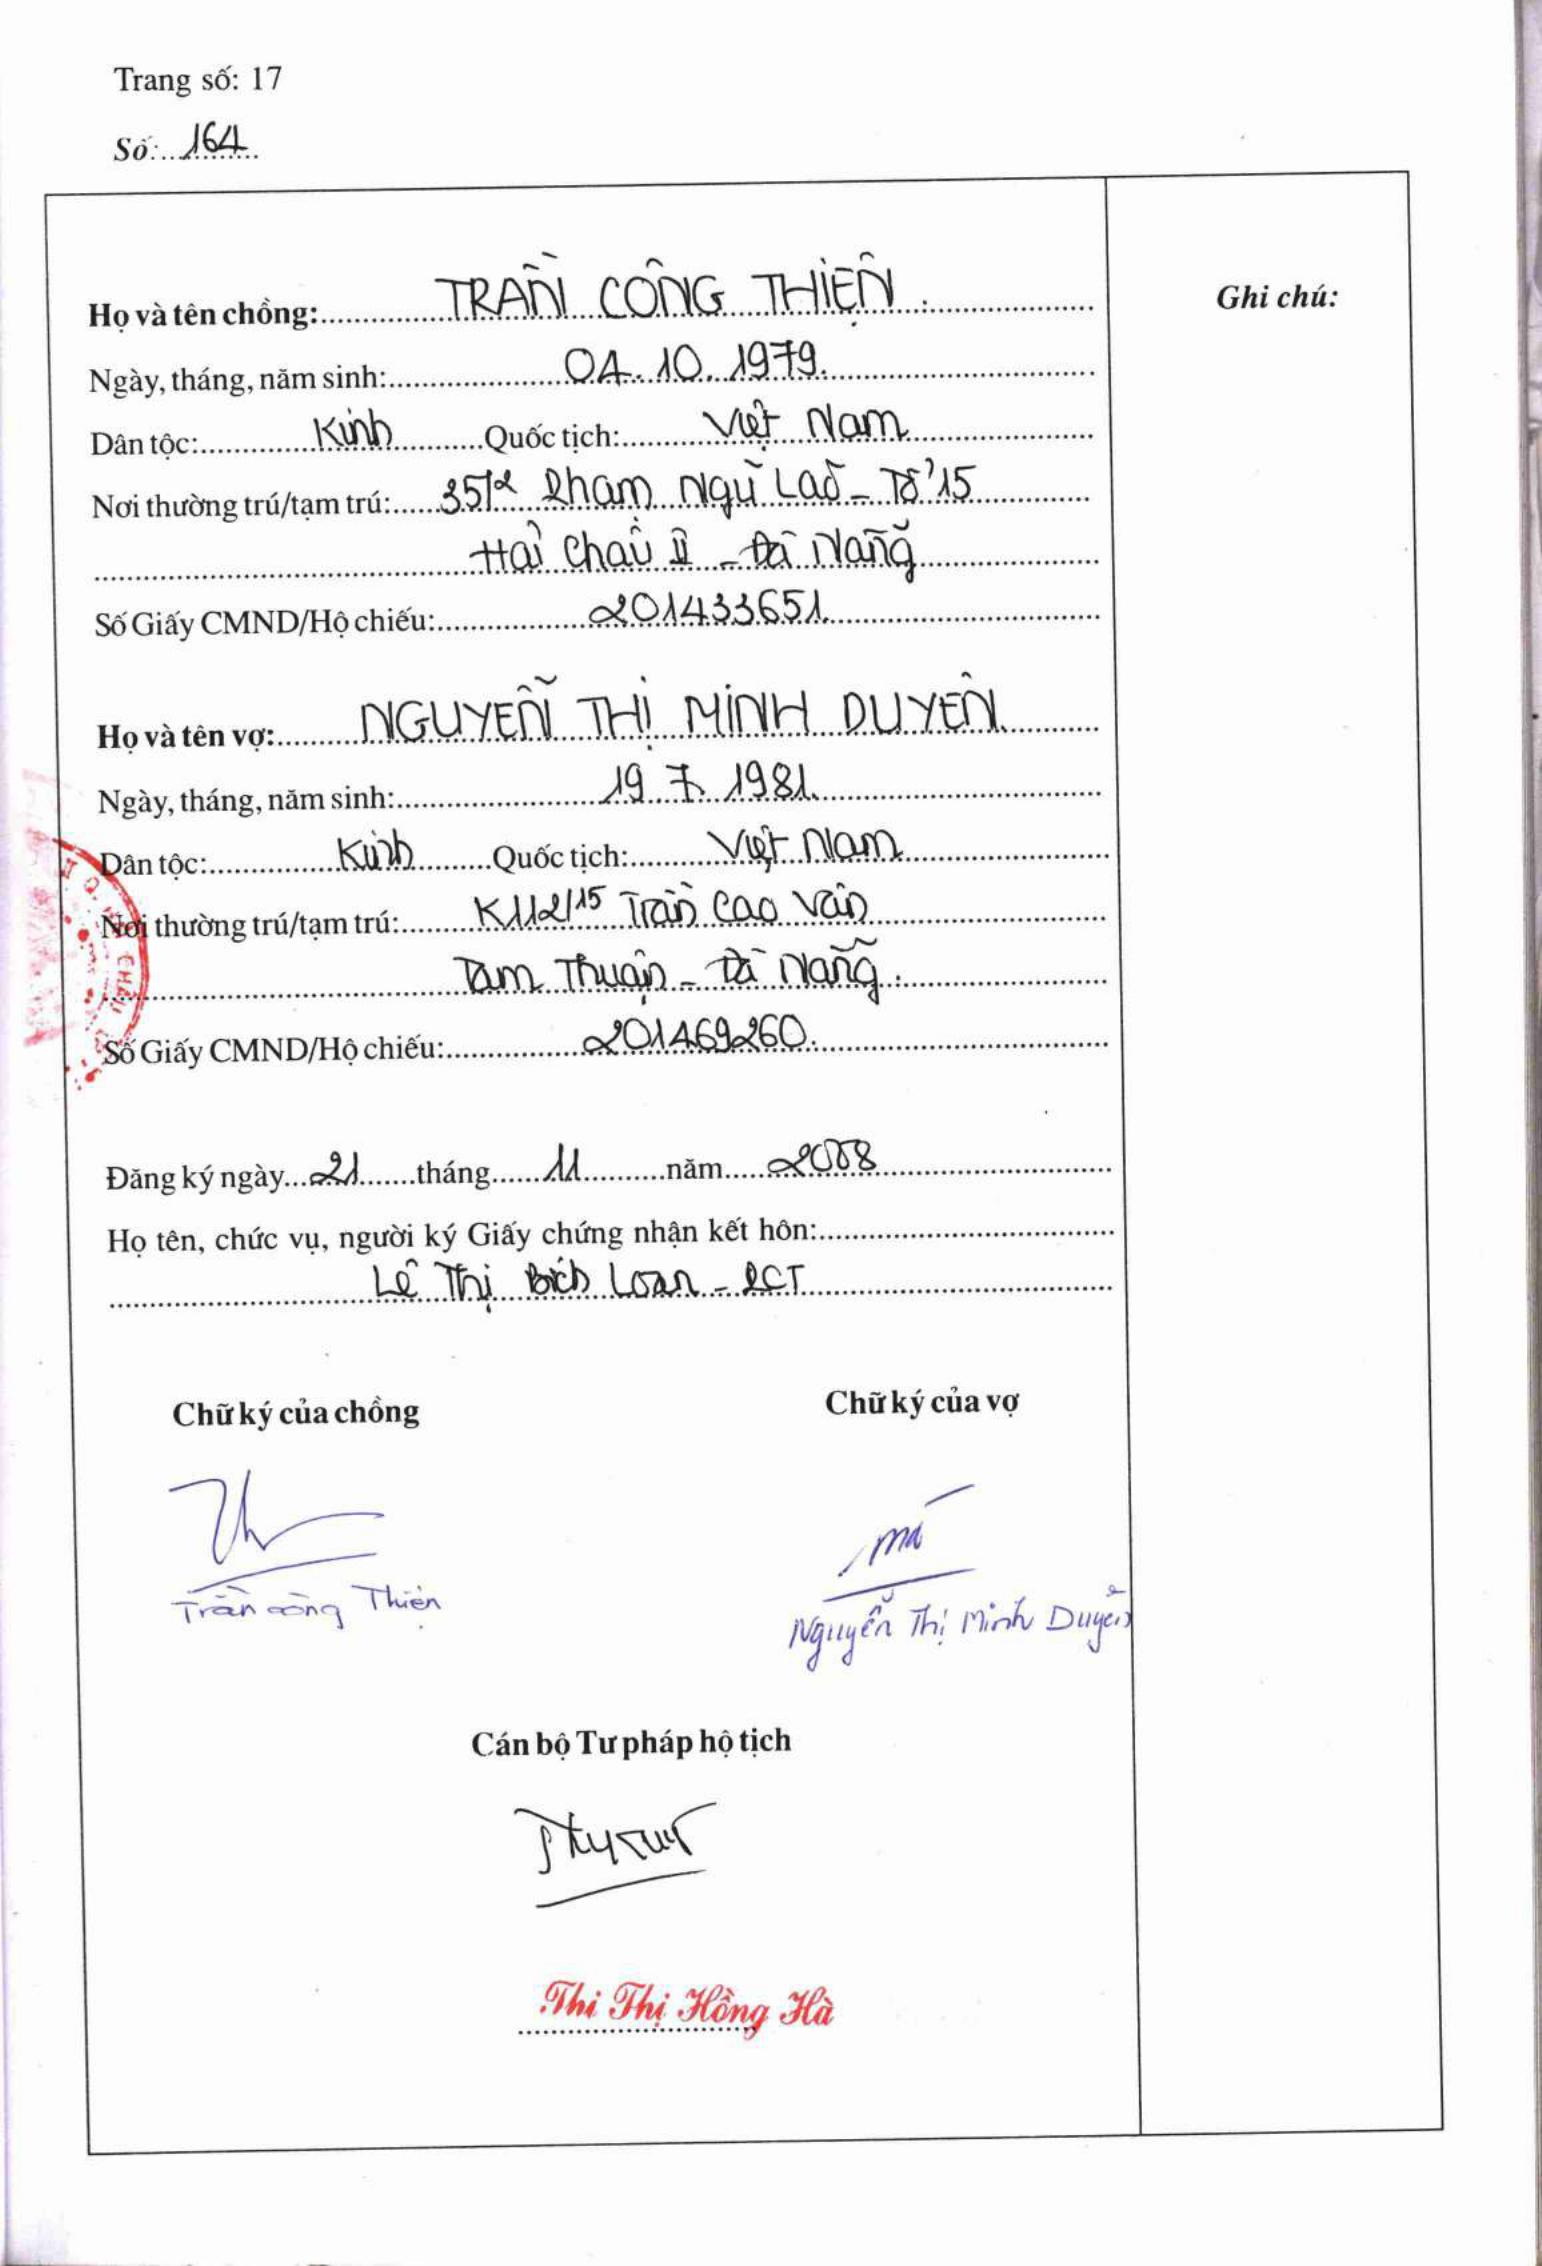 Trang số: 17
Số: 164
Họ và tên chồng: TRẦN CÔNG THIỆN
Ghi chú:
Ngày, tháng, năm sinh: 04.10.1979.
Dân tộc: Kinh Quốc tịch: Việt Nam
Nơi thường trú/tạm trú: 35/2 Phạm Ngũ Lão - Tổ 15
Hải Châu II - Đà Nẵng
Số Giấy CMND/Hộ chiếu: 201433651.
Họ và tên vợ: NGUYỄN THỊ MINH DUYÊN.
Ngày, tháng, năm sinh: 19.7.1981.
Dân tộc: Kinh Quốc tịch: Việt Nam
Nơi thường trú/tạm trú: K112/15 Trần Cao Vân
Tam Thuận - Đà Nẵng.
Số Giấy CMND/Hộ chiếu: 201469260.
Đăng ký ngày 21 tháng 11 năm 2008
Họ tên, chức vụ, người ký Giấy chứng nhận kết hôn:
Lê Thị Bích Loan - PCT
Chữ ký của chồng Chữ ký của vợ
Trần Công Thiện
Nguyễn Thị Minh Duyên
Cán bộ Tư pháp hộ tịch
Thi Thị Hồng Hà